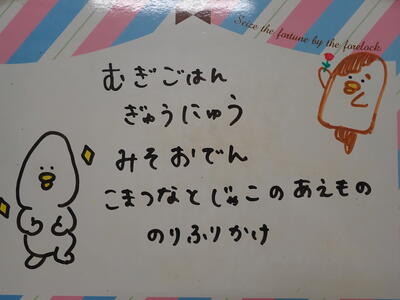 Seize the fortune by the forelock.
むぎごはん
ぎゅうにゅう
みそおでん
こまつなとじゃこのあえもの
のりふりかけ